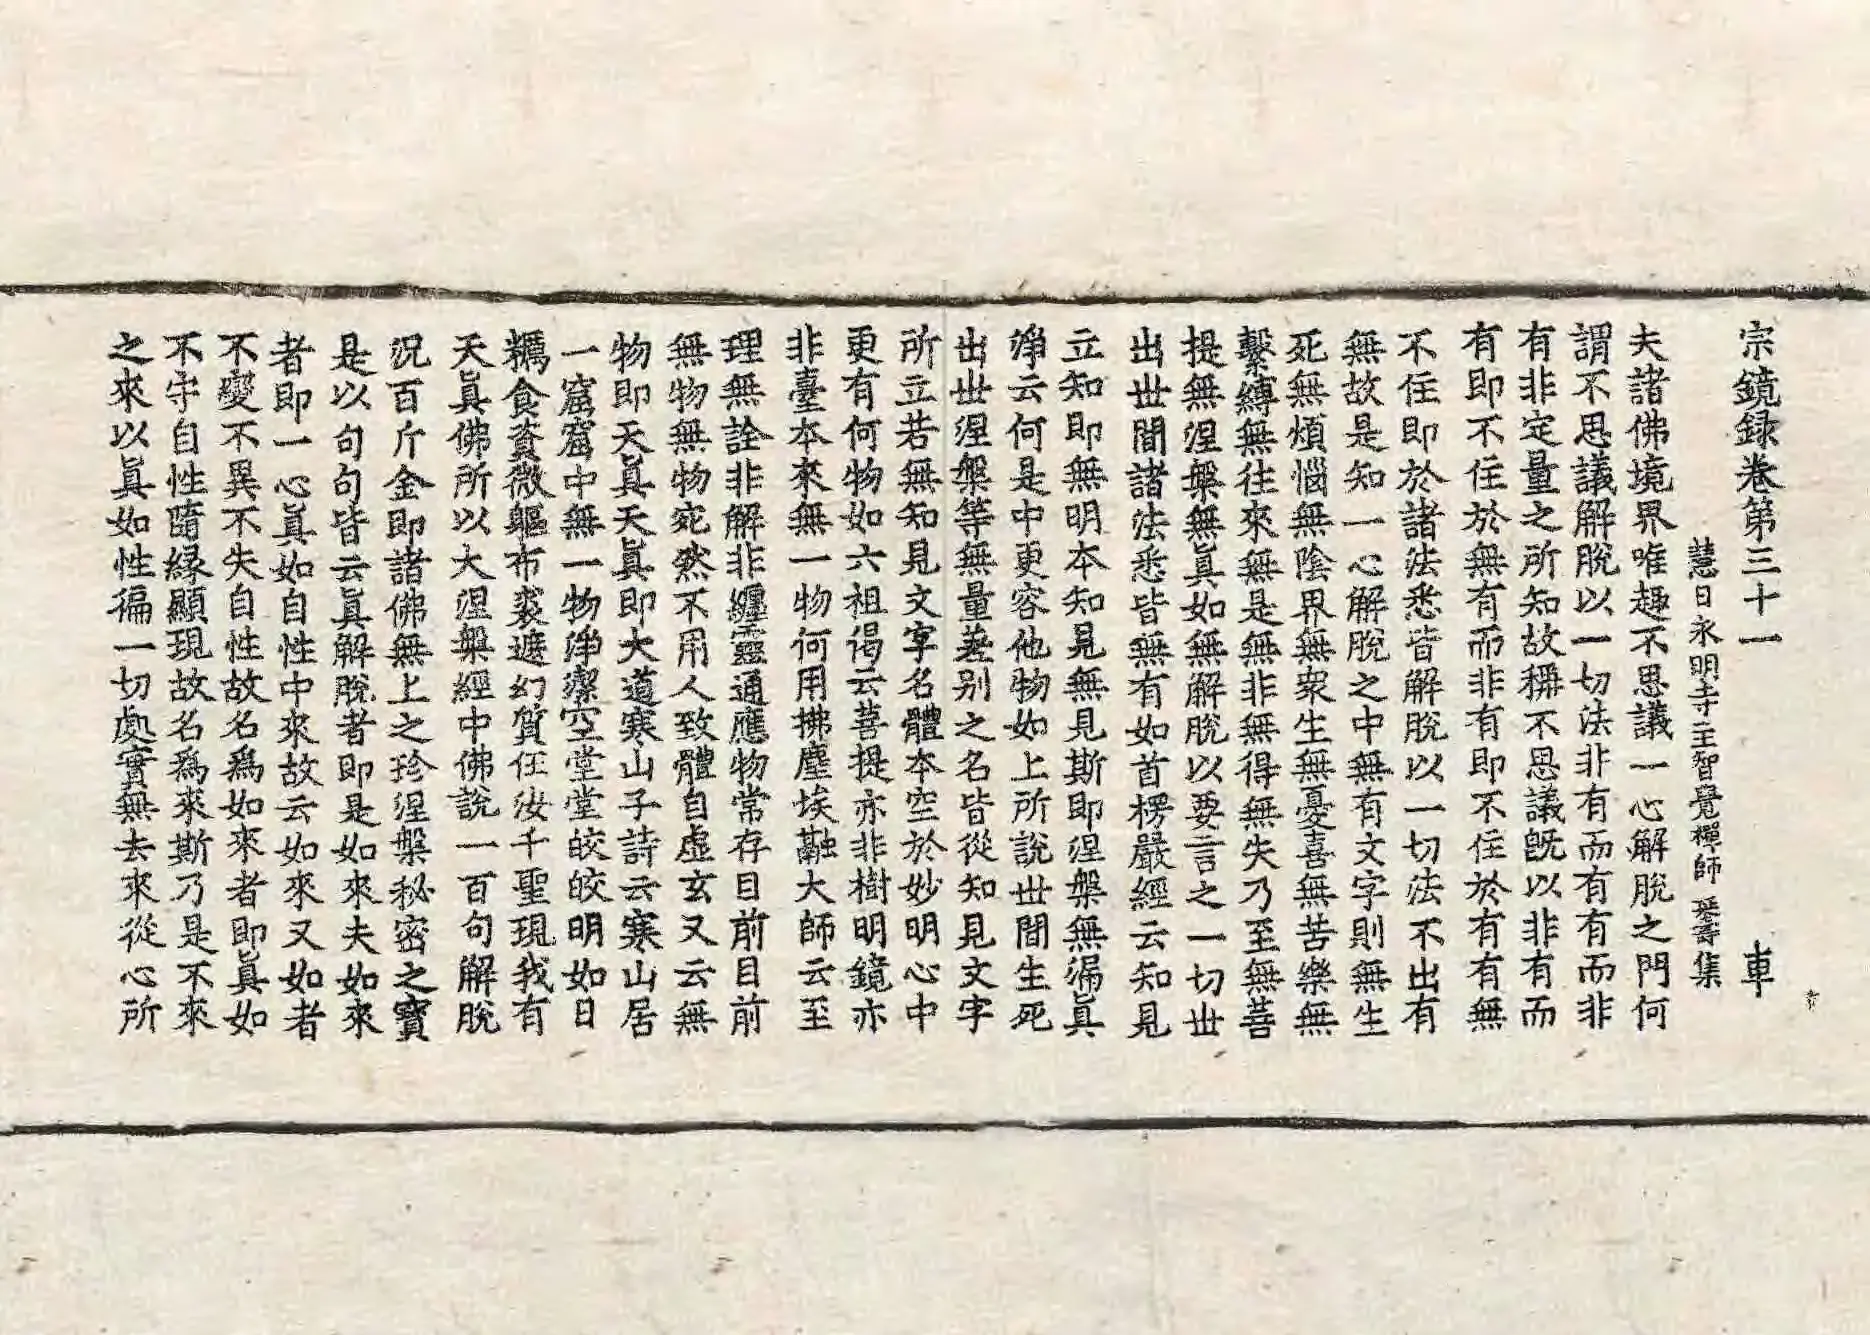 宗鏡録卷第三十一 車
慧日永明寺主智覺禪師延壽集
夫諸佛境界唯趣不思議一心解脫之門何
謂不思議解脫以一切法非有而有有而非
有非定量之所知故稱不思議旣以非有而
有即不住於無有而非有即不住於有有無
不住即於諸法悉皆解脫以一切法不出有
無故是知一心解脫之中無有文字則無生
死無煩惱無陰界無衆生無憂喜無苦樂無
繫縛無往來無是無非無得無失乃至無菩
提無涅槃無真如無解脫以要言之一切世
出世間諸法悉皆無有如首楞嚴經云知見
立知即無明本知見無見斯即涅槃無漏真
淨云何是中更容他物如上所說世間生死
出世涅槃等無量差别之名皆從知見文字
所立若無知見文字名體本空於妙明心中
更有何物如六祖偈云菩提亦非樹明鏡亦
非臺本來無一物何用拂塵埃融大師云至
理無詮非解非纏靈通應物常存目前目前
無物無物宛然不用人致體自虛玄又云無
物即天真天真即大道寒山子詩云寒山居
一窟窟中無一物淨潔空堂堂皎皎明如日
糲食資微軀布裘遮幻質任汝千聖現我有
天真佛所以大涅槃經中佛說一百句解脫
況百斤金即諸佛無上之珍涅槃秘密之寶
是以句句皆云真解脫者即是如來夫如來
者即一心真如自性中來故云如來又如者
不變不異不失自性故名爲如來者即真如
不守自性隨緣顯現故名爲來斯乃是不來
之來以真如性徧一切處實無去來從心所